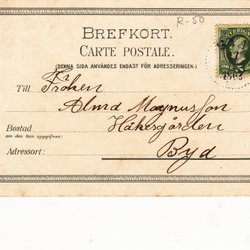 R-50
BREFKORT.
CARTE POSTALE.
(DENNA SIDA ANVÄNDES ENDAST FÖR ADRESSERINGEN.)
Till Fröken
Alma Magnusson
Håkesgården
Bostad
om den kan uppgifvas:
Adressort: Byd